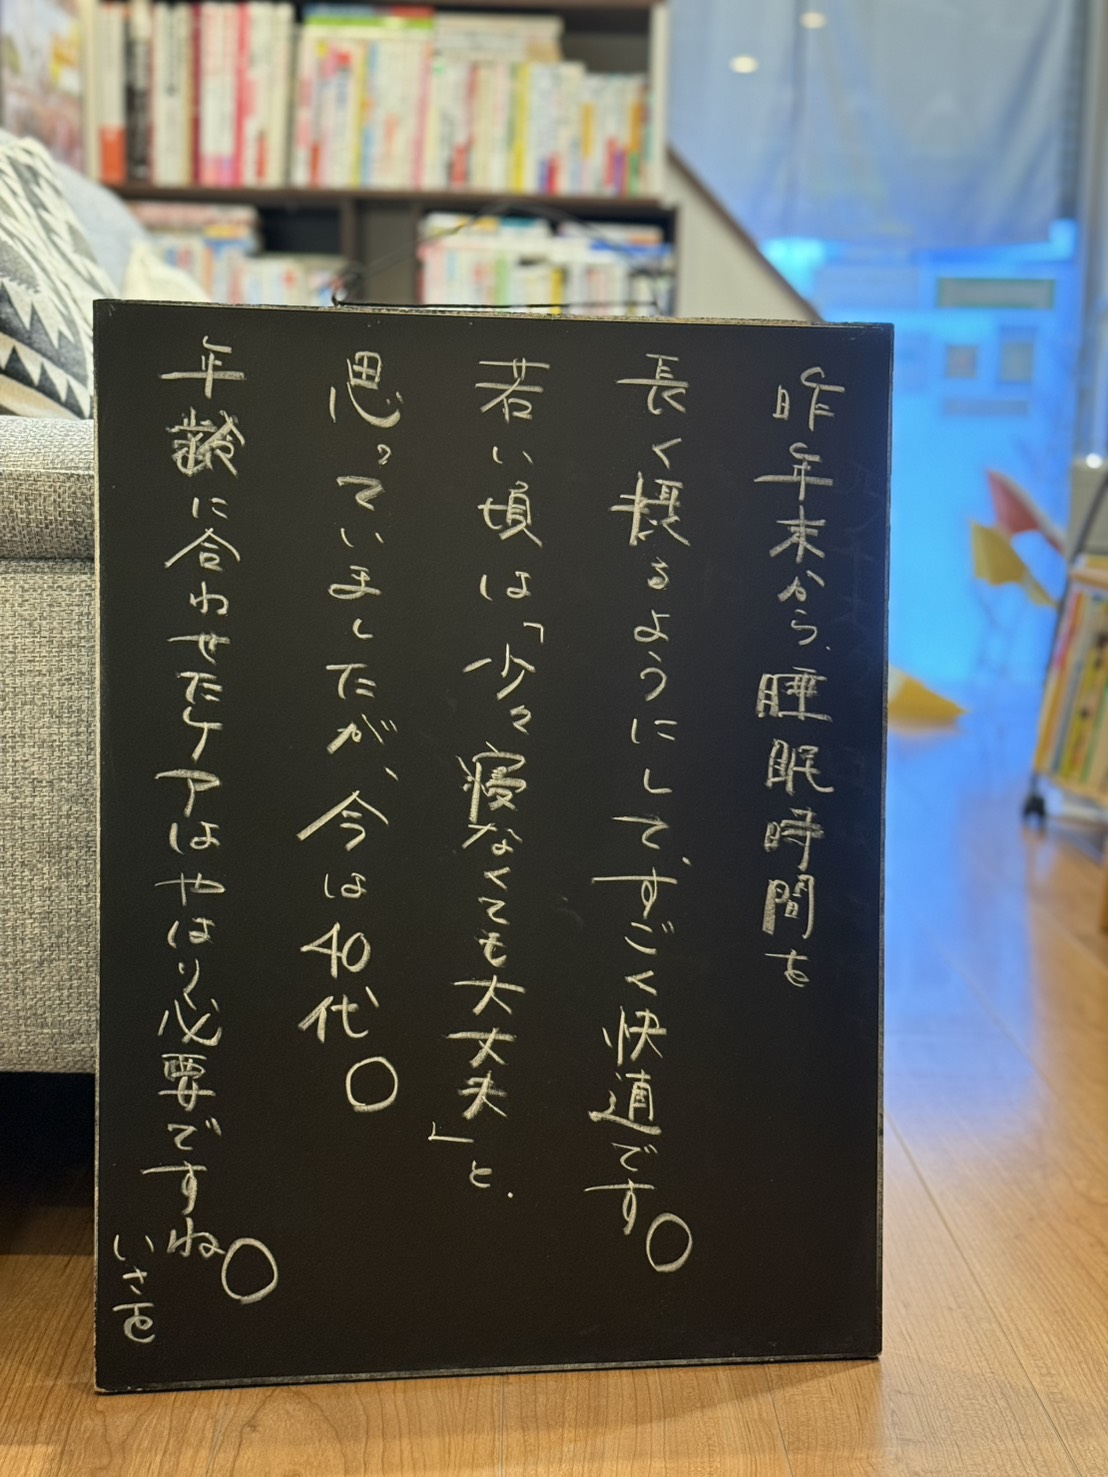 昨年末から、睡眠時間を
長く摂るようにして、すごく快適です。
若い頃は「少々寝なくても大丈夫」と、
思っていましたが、今は40代。
年齢に合わせたケアはやはり必要ですね。
いさを